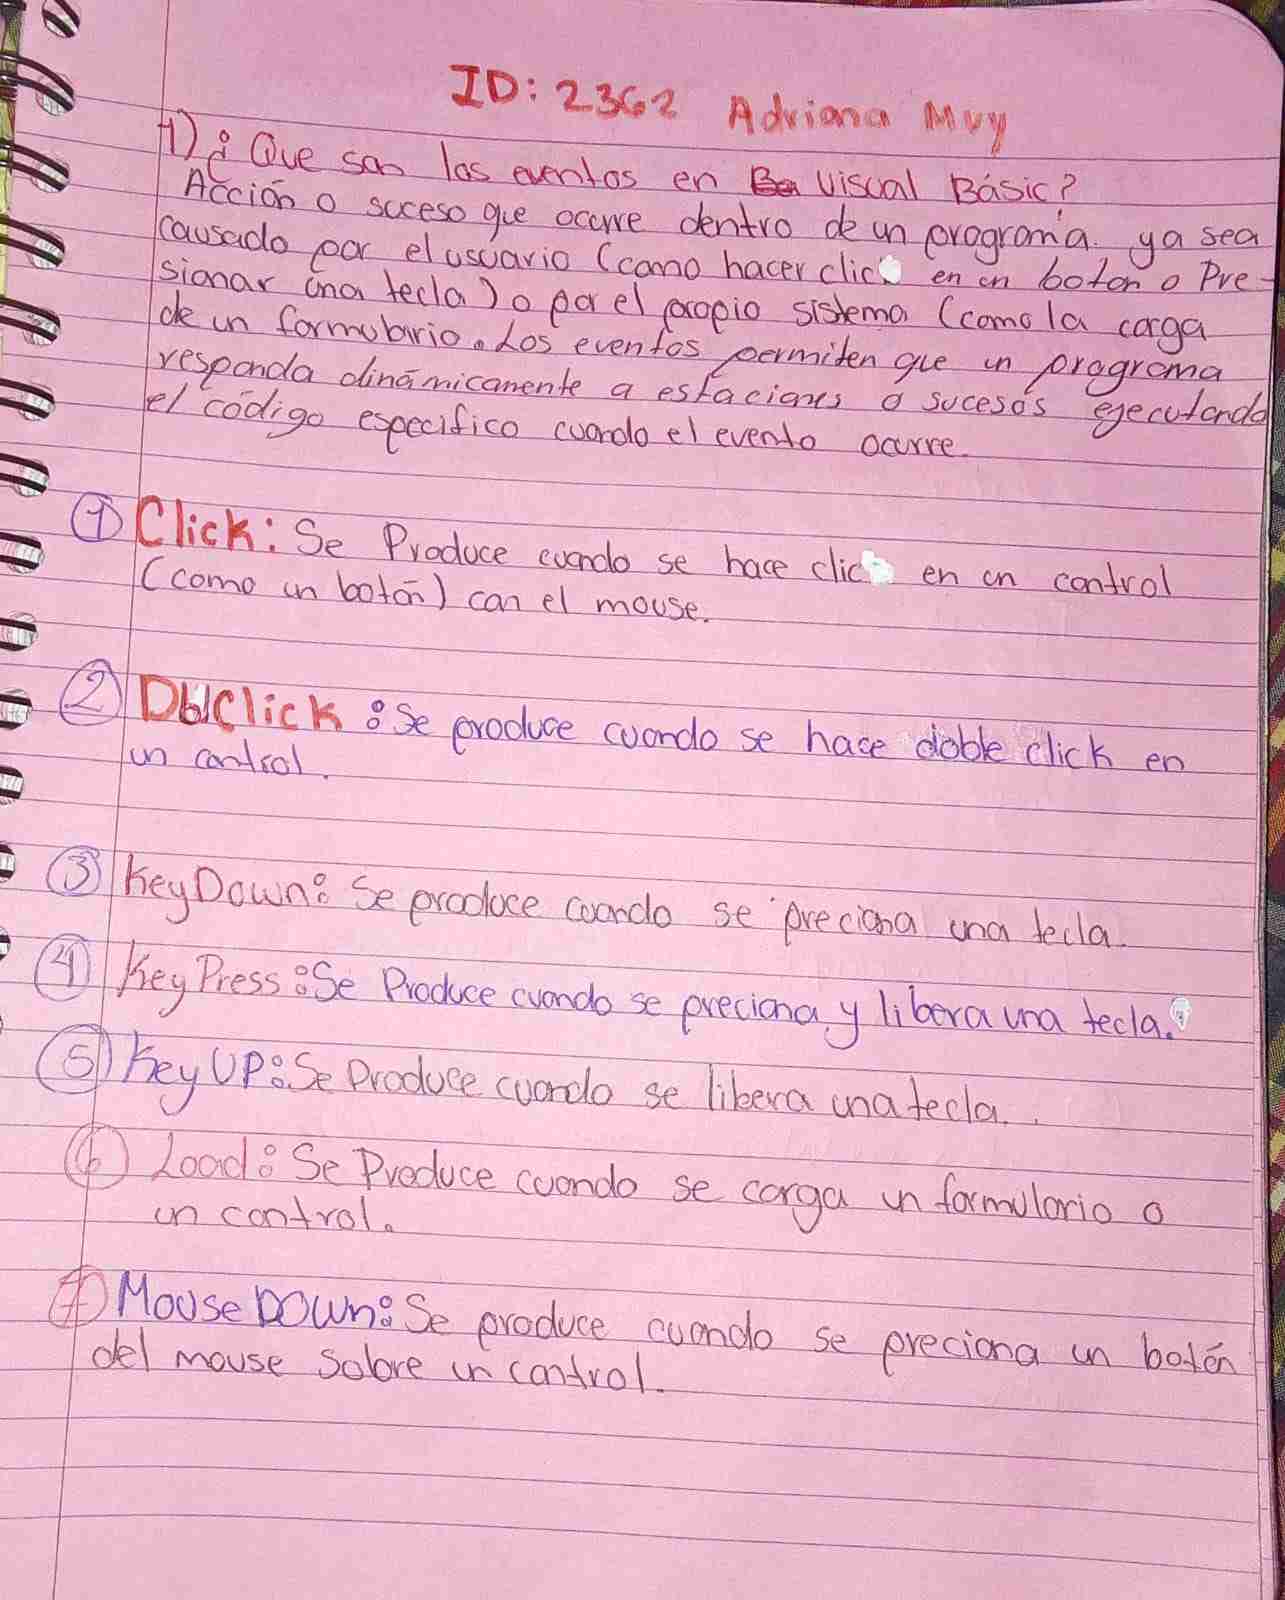 ID: 2362 Adriana Muy
1) ¿Que son los eventos en Visual Básic?
Acción o suceso que ocurre dentro de un programa. ya sea
causado por el usuario (como hacer clic en un boton o Pre-
sionar una tecla) o por el propio sistema (como la carga
de un formulario. Los eventos permiten que un programa
responda dinámicamente a estaciones o sucesos ejecutando
el código especifico cuando el evento ocurre.
1 Click: Se Produce cuando se hace clic en un control
(como un botón) con el mouse.
2 DblClick: Se produce cuando se hace doble click en
un control.
3 KeyDown: Se produce cuando se preciona una tecla.
4 KeyPress: Se Produce cuando se preciona y libera una tecla.
5 Key UP: Se Produce cuando se libera una tecla.
6 Load: Se Produce cuando se carga un formulario o
un control.
7 Mouse DOWn: Se produce cuando se preciona un botón
del mouse sobre un control.